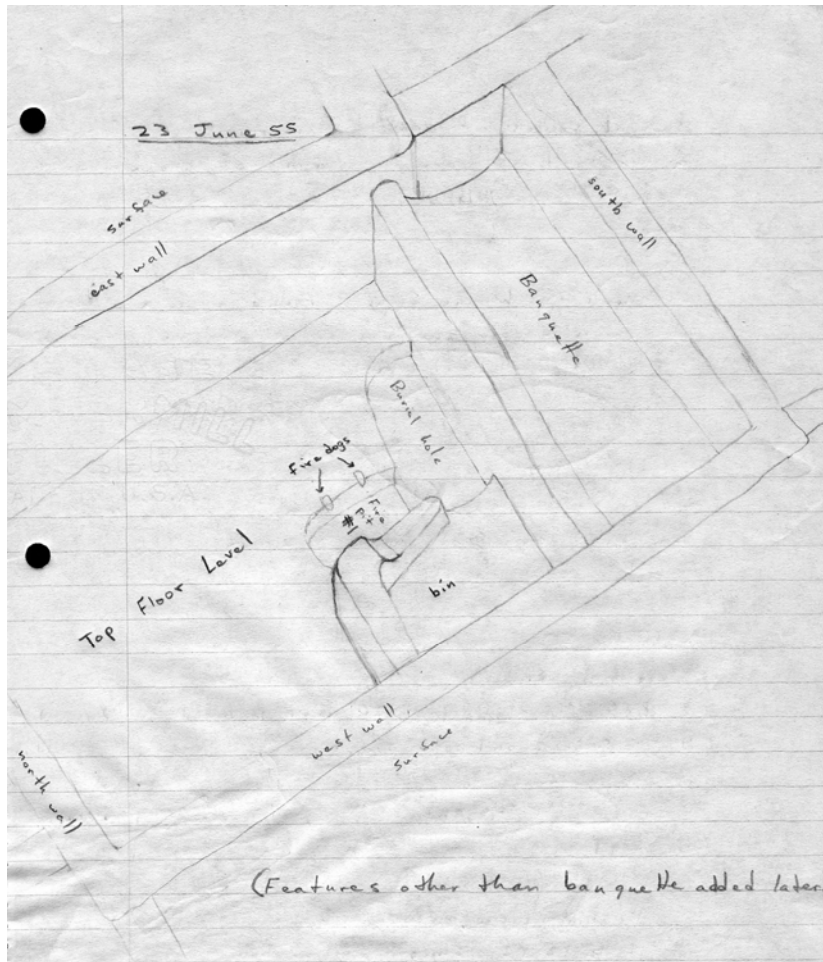 23 June 55
surface
east wall
south wall
Banquette
Burial hole
Fire dogs
# Fire Pit
Top Floor Level
bin
west wall
surface
north wall
(Features other than banquette added later